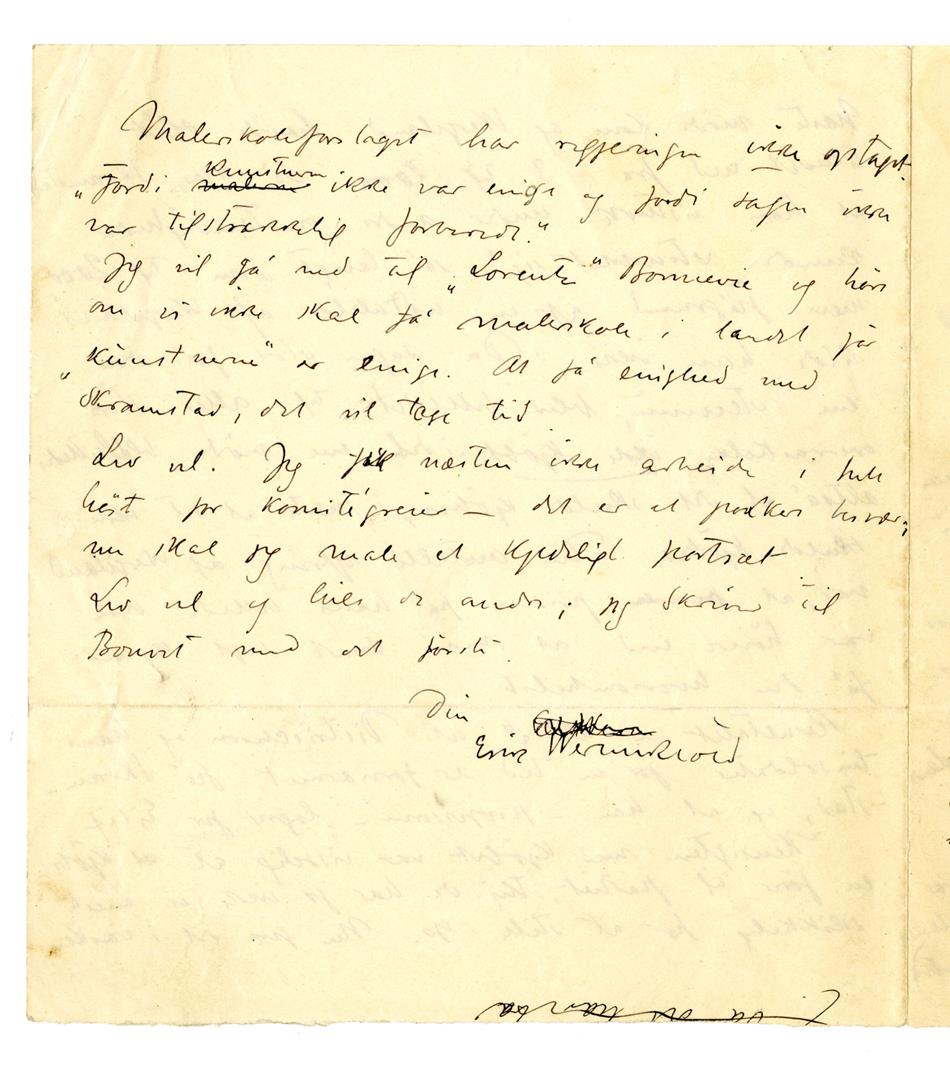 Malerskoleforslaget har regjeringen ikke optaget
„fordi malerne kunstnerne ikke var enige og fordi sagen ikke
var tilstrækkelig forberedt."
Jeg vil gå ned til „Lorentz" Bonnevie og høre
om vi ikke skal få malerskole i landet før
„kunstnerne" er enige. At få enighed med
Skramstad, det vil tage tid.
Lev vel. Jeg fik næsten ikke arbeide i hele
høst for komitégreier – det er et pokkers besvær;
nu skal jeg male et kjedeligt portræt
Lev vel og hils de andre; jeg skriver til
Bonvet med det første.
Din
Erik Werenskiold